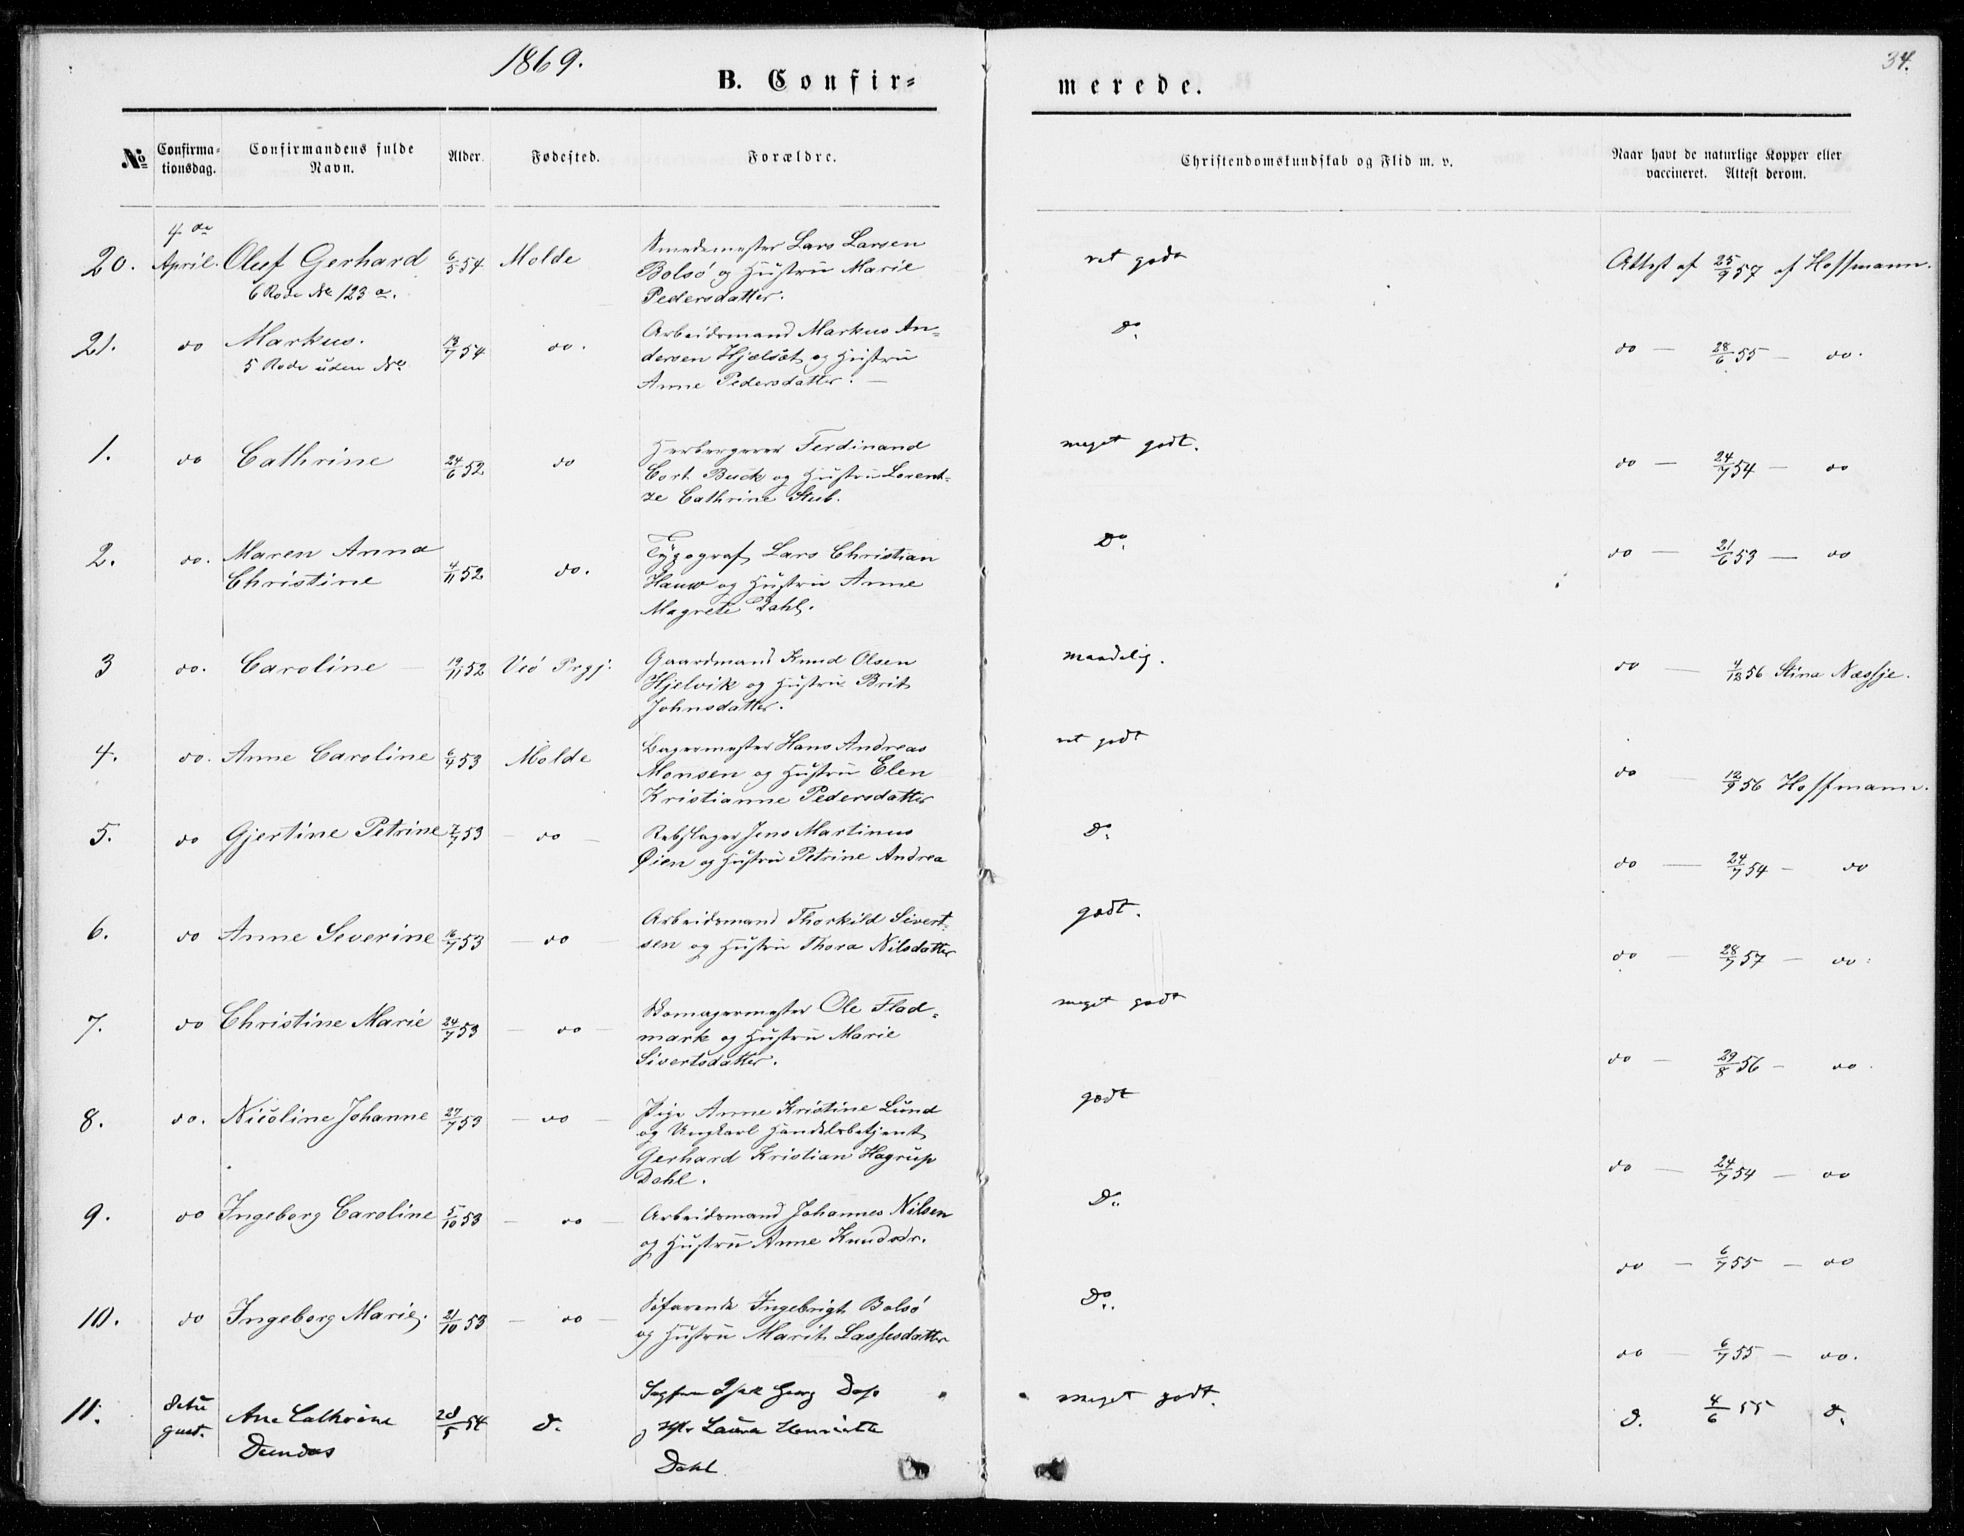 1869.
34.
B. Confir=
merede.
No
Confirma-
tionsdag.
Confirmandens fulde
Navn.
Alder.
Fødested.
Forældre.
Christendomskundskab og Flid m. v.
Naar havt de naturlige Kopper eller
vaccineret. Attest derom.
20. 4de April. Oluf Gerhard 6/5 54 Molde Smedemester Lars Larsen ret godt Attest af 25/9 57 af Hoffmann.
6 Rode No 123 a. Bolsö og Hustru Marie
Pedersdatter.
21. do Markus. 13/7 54 do. Arbeidsmand Markus An- Do. do — 28/6 55 — do.
5 Rode uden No dersen Hjelset og Hustru
Anne Pedersdatter. —
1. do Cathrine 24/6 52 do Herbergerer Ferdinand meget godt. do — 24/7 54 — do
Cort Buck og Hustru Lorent-
ze Cathrine Stub.
2. do. Maren Anna 4/11 52 do. Typograf Lars Christian Do. do — 21/6 53 — do
Christine Hauw og Hustru Anne
Magrete Dahl.
3 do. Caroline — 19/11 52 Veö Prgj. Gaardmand Knud Olsen maadelig. do — 4/12 56 Stina Næssje.
Hjelvik og Hustru Brit
Johnsdatter.
4. do. Anne Caroline 6/4 53 Molde Bagermester Hans Andreas ret godt do — 12/9 56 Hoffmann.
Monsen og Hustru Elen
Kristianne Pedersdatter
5. do Gjertine Petrine 7/7 53 — do — Rebslager Jens Martinus Do. do — 24/7 54 — do
Øien og Hustru Petrine Andrea
6. do Anne Severine 16/7 53 — do — Arbeidsmand Thorkild Sivert- godt. do — 28/7 57 — do.
sen og Hustru Thora Nilsdatter
7. do Christine Marie 24/7 53 — do — Skomagermester Ole Flad- meget godt do — 29/8 56 — do.
mark og Hustru Marie
Sivertsdatter.
8. do. Nicoline Johanne 27/7 53 — do — Pige Anne Kristine Lund godt do — 24/7 54 — do
og Ungkarl Handelsbetjent
Gerhard Kristian Hagrup
Dahl.
9. do Ingeborg Caroline 5/10 53 — do — Arbeidsmand Johannes Nilsen Do. do — 6/7 55 — do
og Hustru Anne Knudsdr.
10. do Ingeborg Marie. 21/10 53 — do — Söfarende Ingebrigt Bolsö Do. do — 6/7 55 — do.
og Hustru Marit Lassesdatter
11. Ane Cathrine 28/5 54 D. Georg meget godt. D. 4/6 55 D.
Dundas Laura Henriette
Dahl